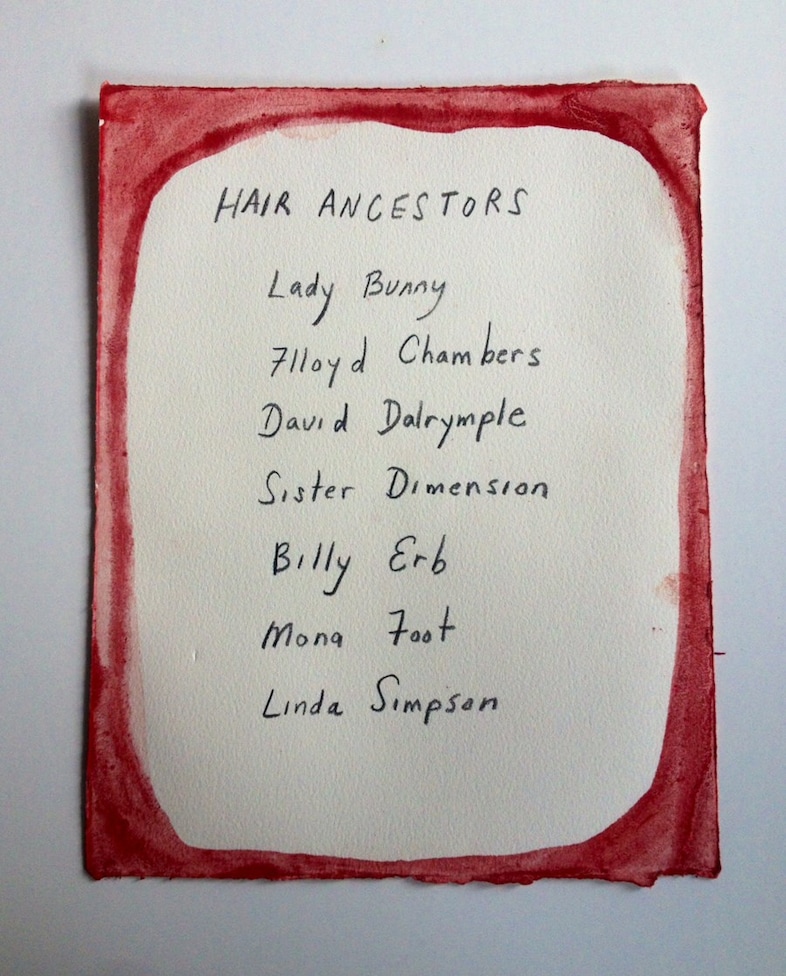 HAIR ANCESTORS
Lady Bunny
Flloyd Chambers
David Dalrymple
Sister Dimension
Billy Erb
Mona Foot
Linda Simpson